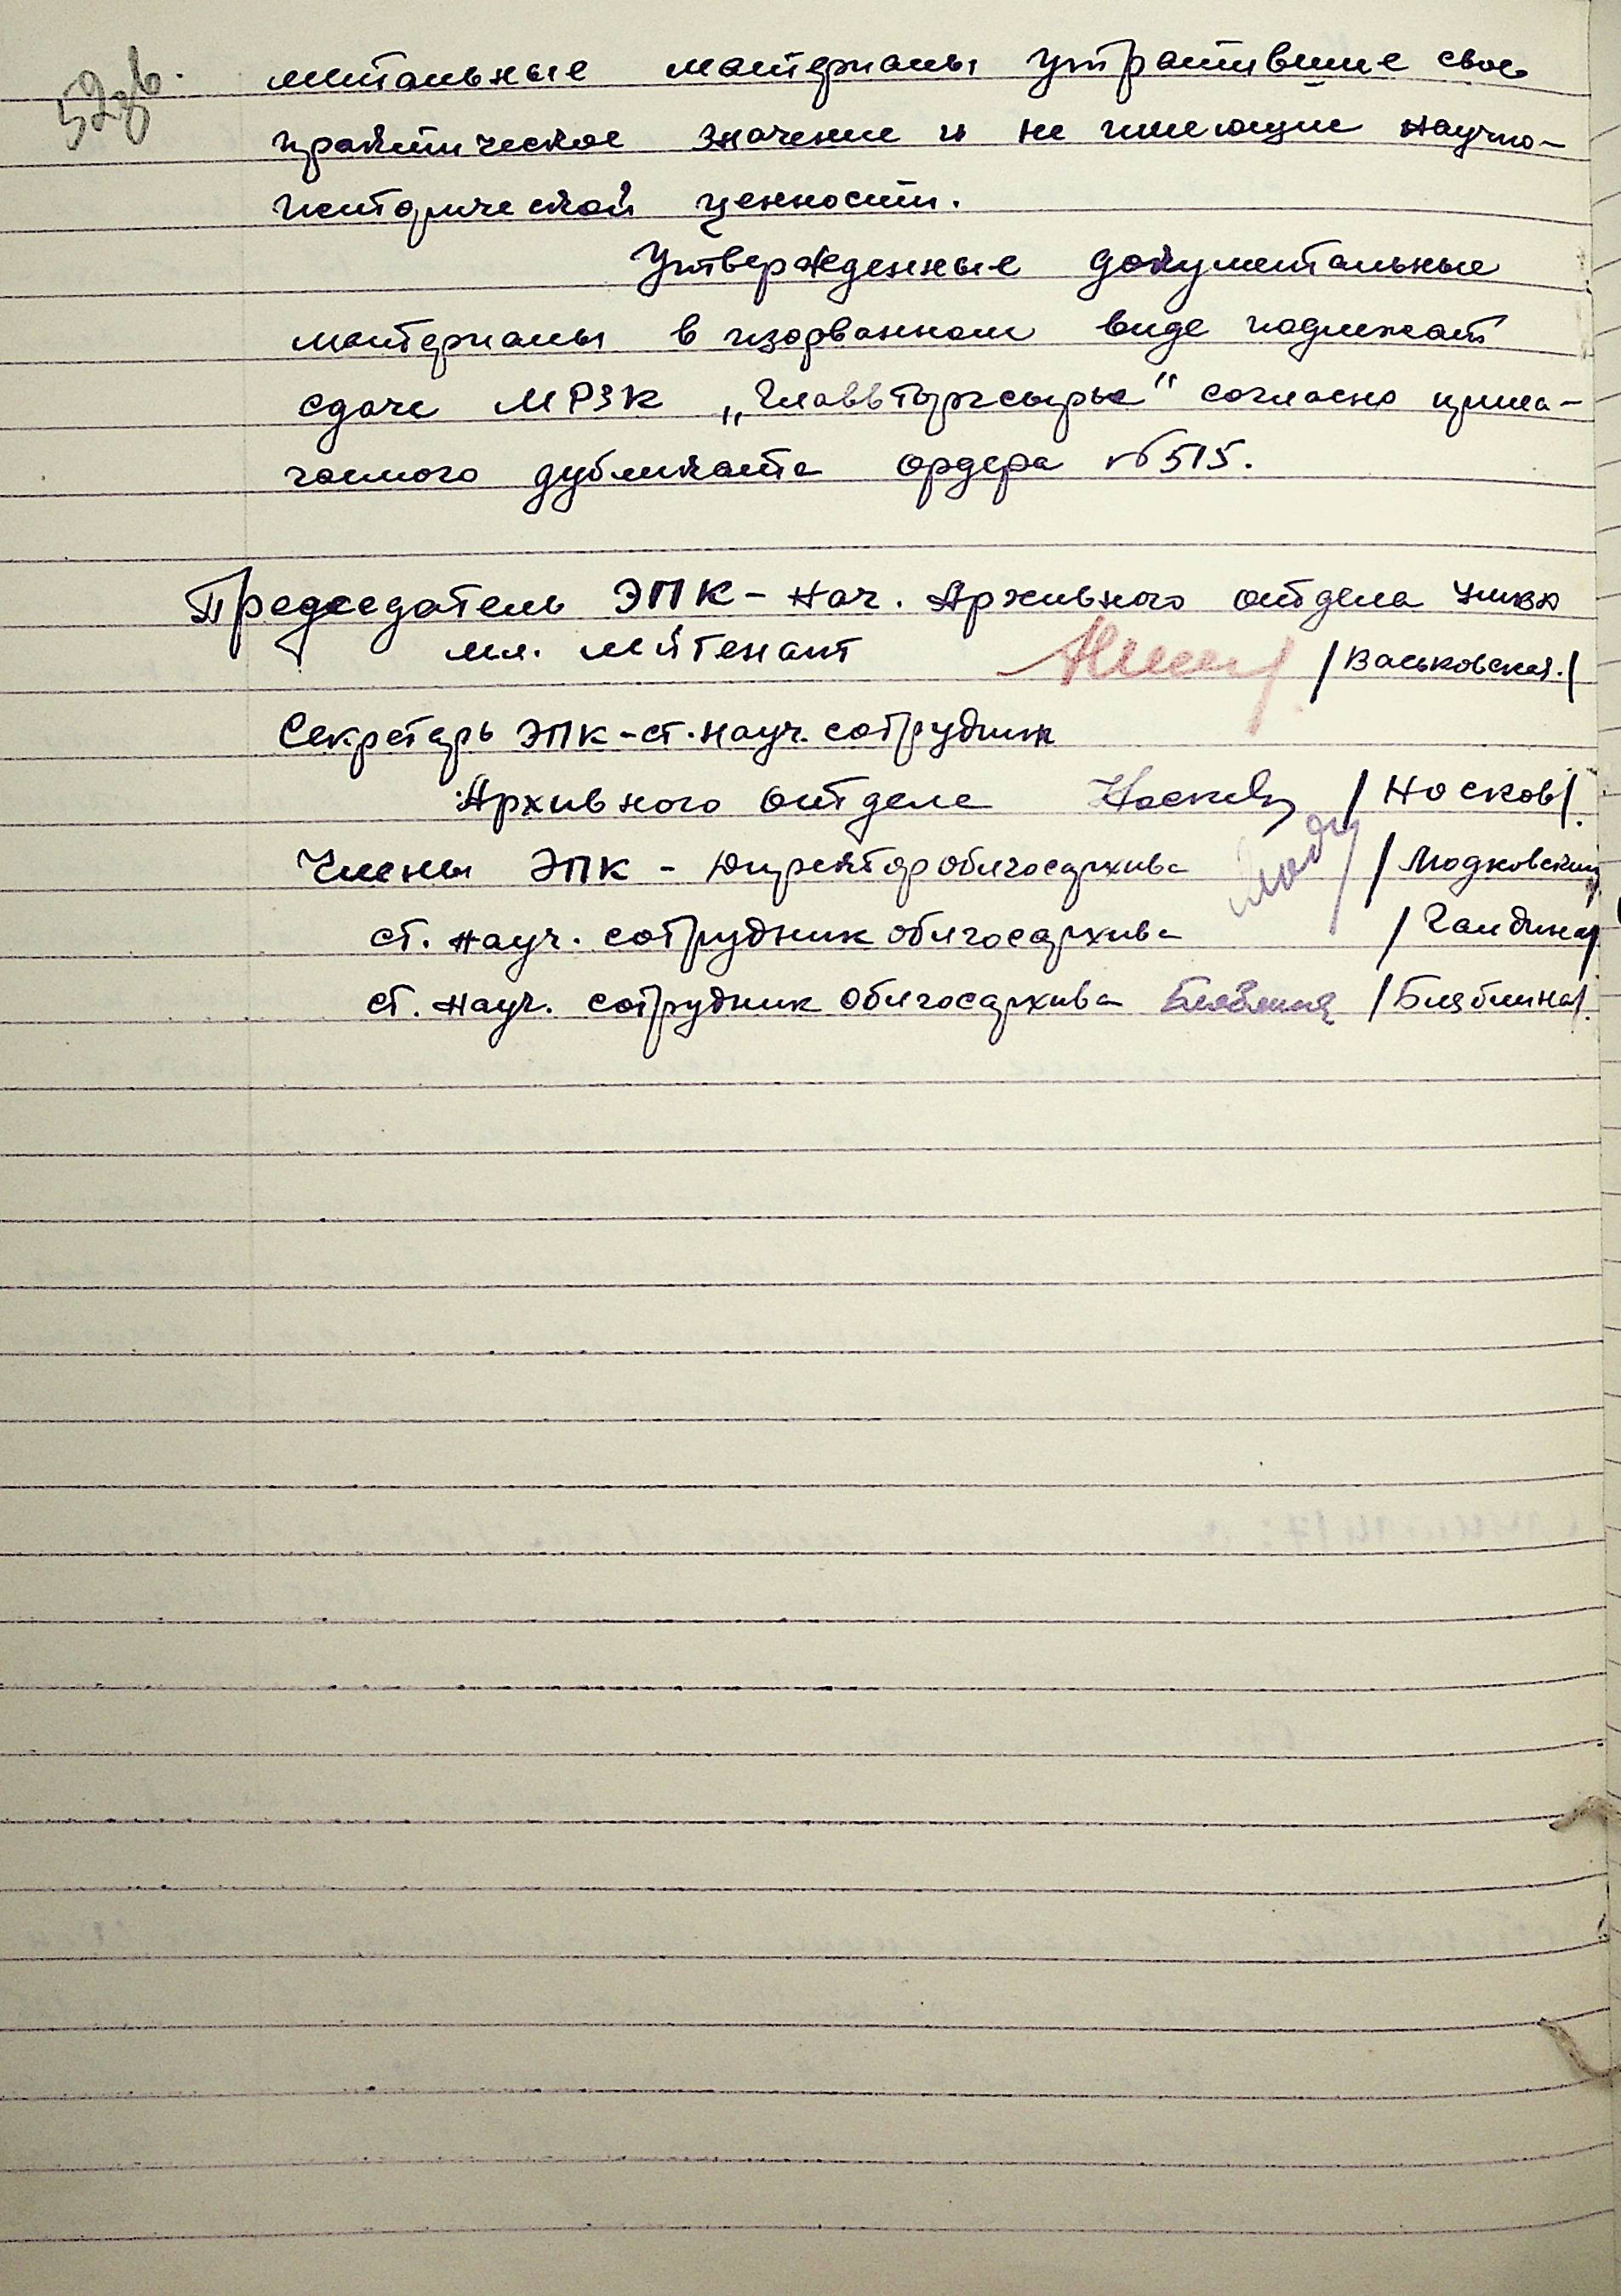 52об.
ментальные материалы утратившие свое
практическое значение и не имеющие научно-
исторической ценности.
Утвержденные документальные
материалы в изорванном виде подлежат
сдаче МРЗК „Главвторсырье" согласно прила-
гаемого дубликата ордера №515.
Председатель ЭПК - Нач. Архивного отдела УМВД
мл. лейтенант /Васьковская./
Секретарь ЭПК - ст. науч. сотрудник
Архивного отдела Носков /Носков/.
Члены ЭПК - Директор облгосархива /Людковский/
ст. науч. сотрудник облгосархива /Галдина/
ст. науч. сотрудник облгосархива Бляблина /Бляблина/.